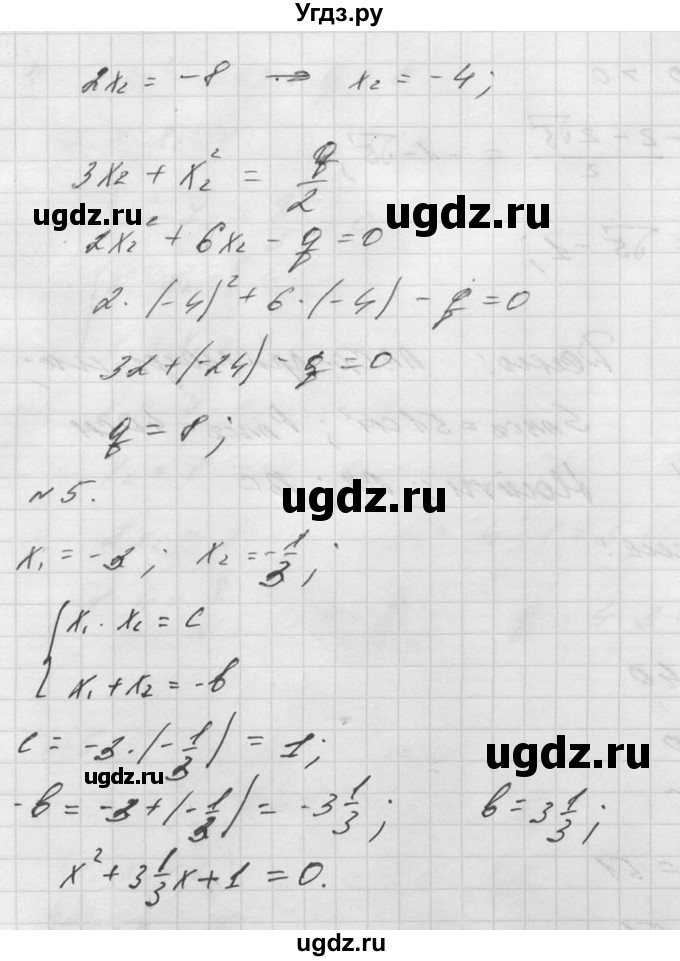 Угдз.ру
2x₂ = -8 → x₂ = -4;
3x₂ + x₂² = q/2
ugdz.ru ugdz.ru
2x₂² + 6x₂ - q = 0
2·(-4)² + 6·(-4) - q = 0
32+(-24) - q = 0
q = 8;
ugdz.ru
№5.
x₁ = -3; x₂ = -1/3;
{ x₁·x₂ = c
x₁+x₂ = -в
c = -3·(-1/3) = 1;
ugdz.ru ugdz.ru
-в = -3+(-1/3) = -3 1/3; в = 3 1/3;
x² + 3 1/3 x + 1 = 0.
ugdz.ru